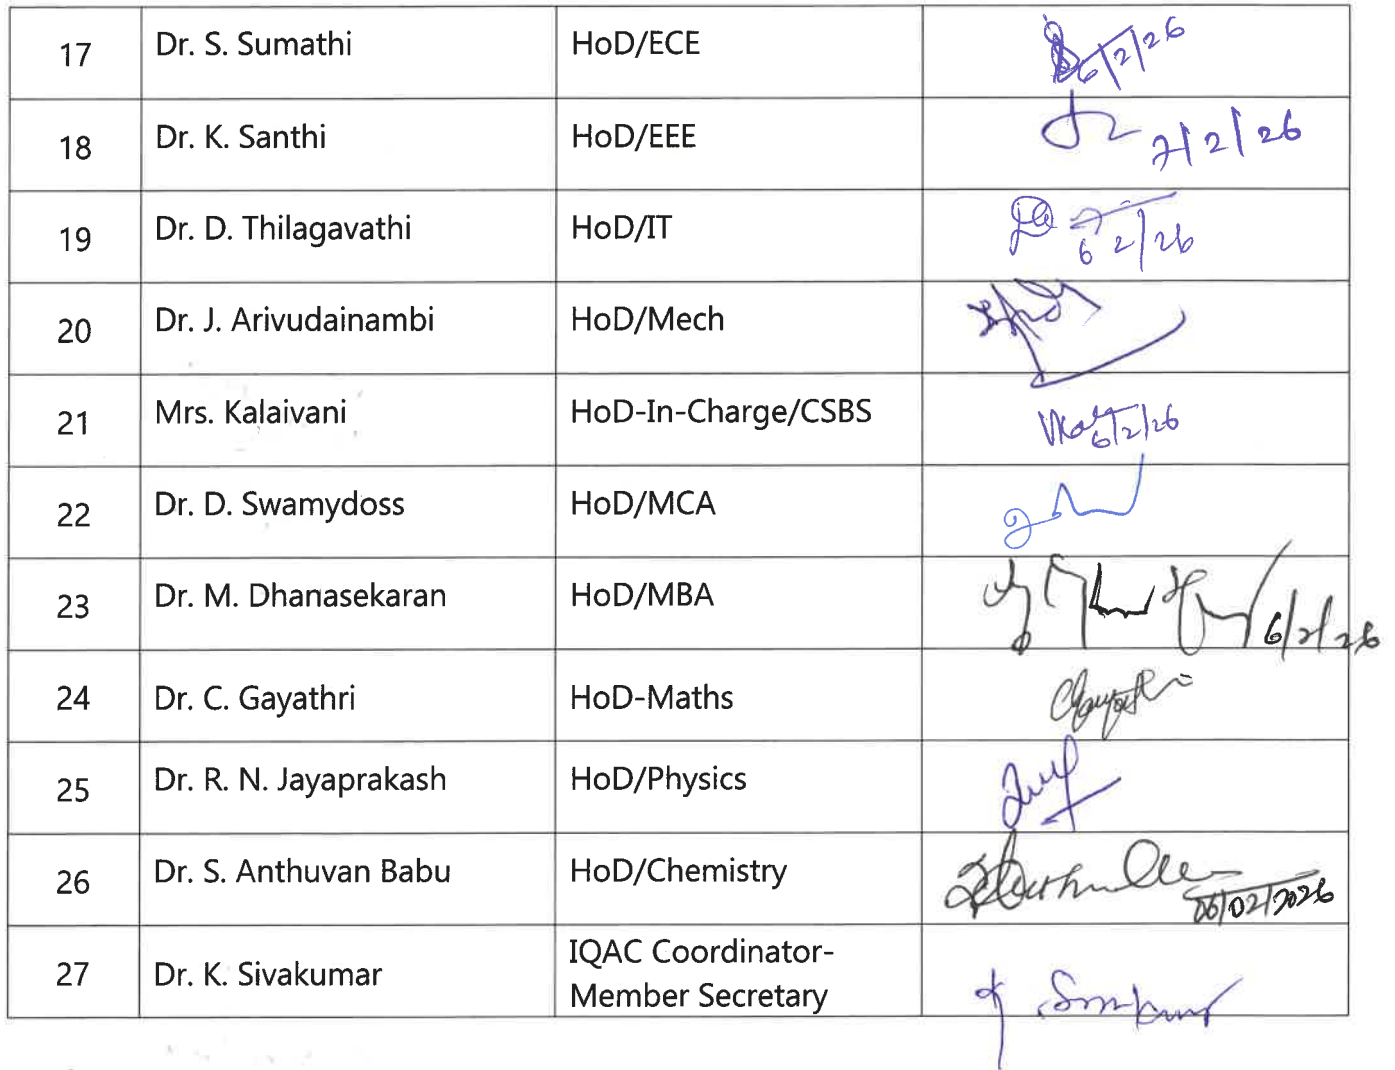 17 Dr. S. Sumathi HoD/ECE 6/2/26
18 Dr. K. Santhi HoD/EEE 7/2/26
19 Dr. D. Thilagavathi HoD/IT 6/2/26
20 Dr. J. Arivudainambi HoD/Mech
21 Mrs. Kalaivani HoD-In-Charge/CSBS 6/2/26
22 Dr. D. Swamydoss HoD/MCA
23 Dr. M. Dhanasekaran HoD/MBA 6/2/26
24 Dr. C. Gayathri HoD-Maths
25 Dr. R. N. Jayaprakash HoD/Physics
26 Dr. S. Anthuvan Babu HoD/Chemistry 06/02/2026
27 Dr. K. Sivakumar IQAC Coordinator-
Member Secretary